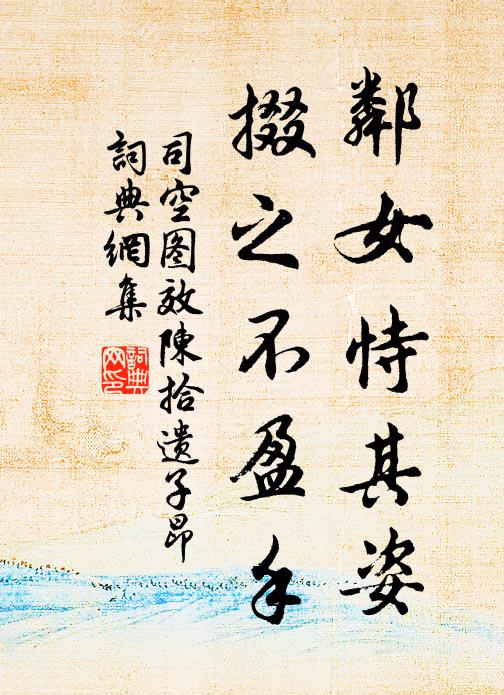 鄰女恃其姿
掇之不盈手
司空图效陳拾遗子昂
詞典網集
詞典網印